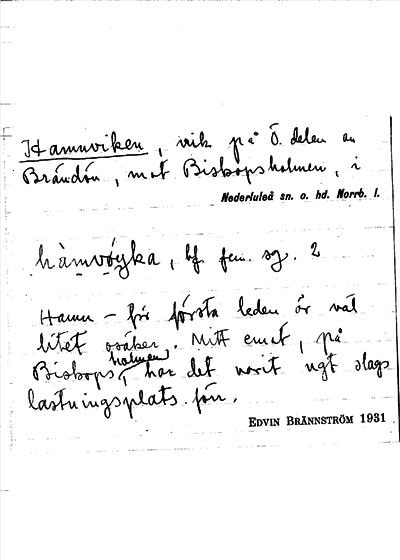 Hamnviken, vik på Ö. delen av
Brändön, mot Bisk​opsholmen, i
Nederluleå sn. o. hd. Norrb. l.
bf. fem. sg. 2
Hamn – för första leden är väl
litet osäker. Mitt emot, på
Biskopsholmen, har det varit ngt slags
lastningsplats förr.
EDVIN BRÄNNSTRÖM 1931